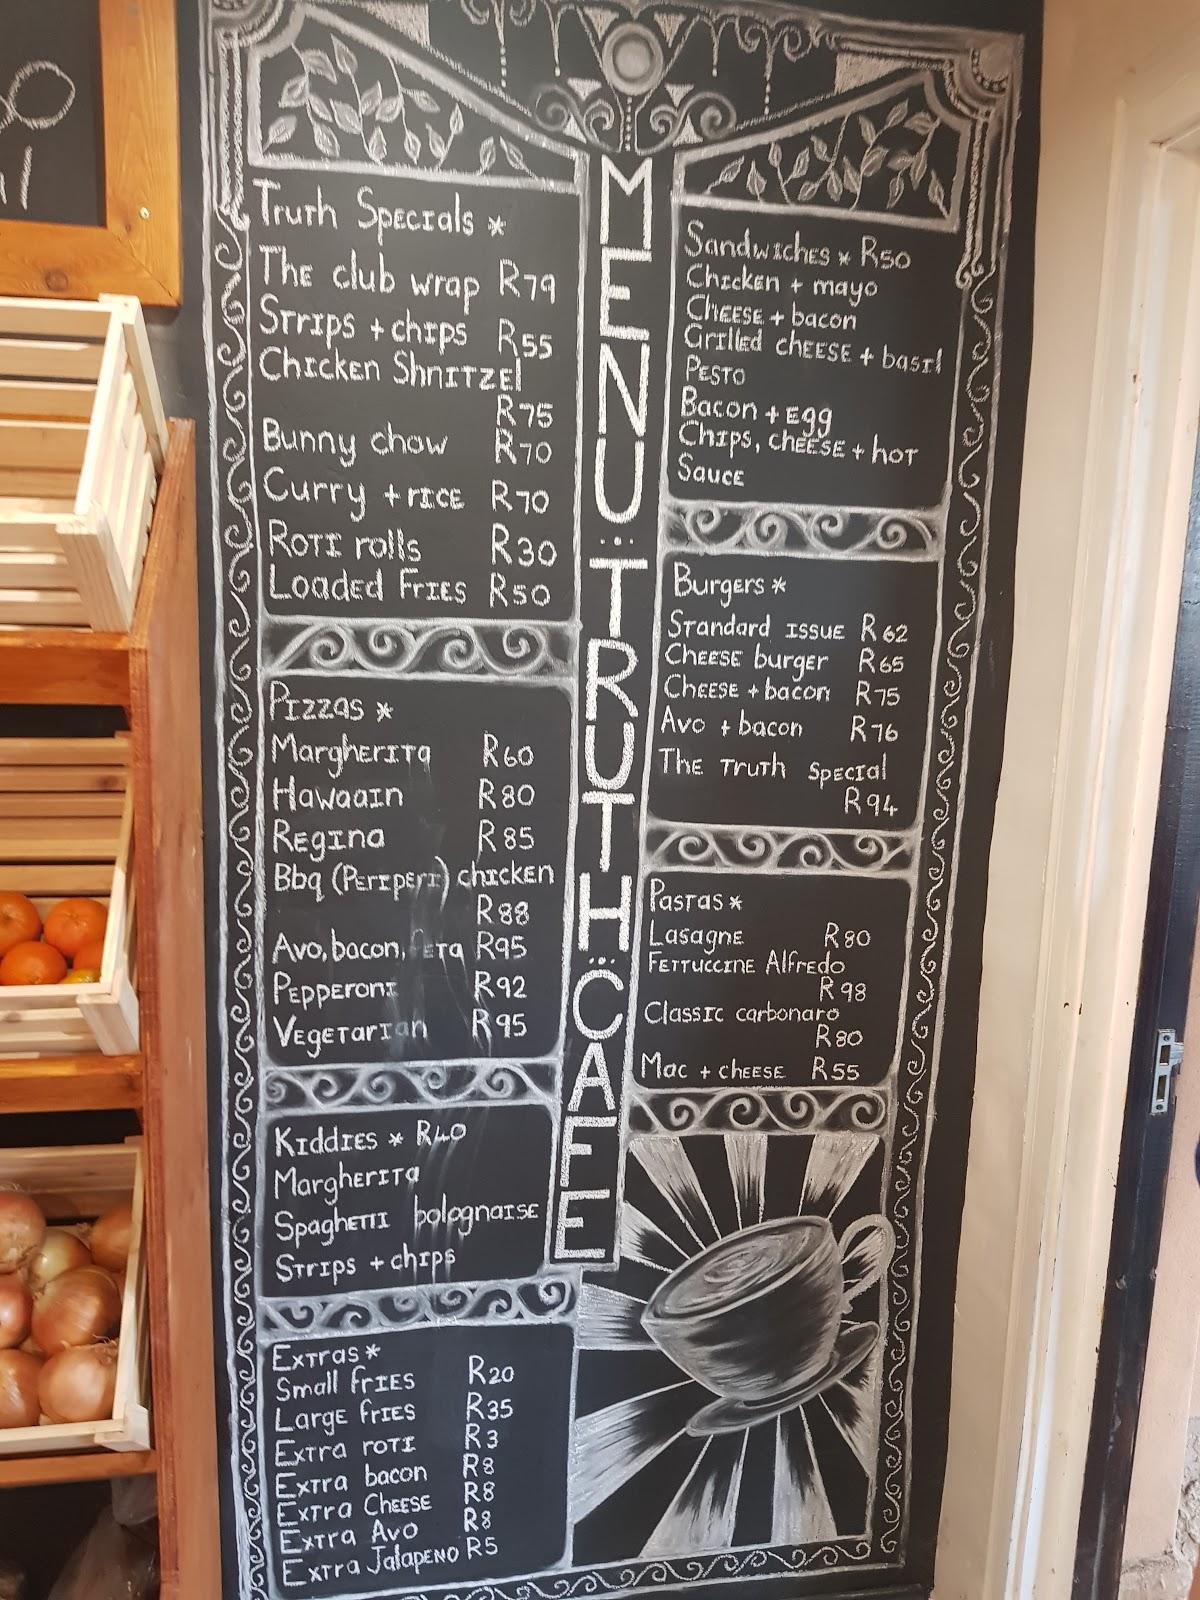 MENU ... TRUTH ... CAFE
Truth Specials *
The club wrap R79
Strips + chips R55
Chicken Shnitzel
R75
Bunny chow R70
Curry + rice R70
Roti rolls R30
Loaded Fries R50
Pizzas *
Margherita R60
Hawaain R80
Regina R85
Bbq (Periperi) chicken
R88
Avo, bacon, feta R95
Pepperoni R92
Vegetarian R95
Kiddies * R40
Margherita
Spaghetti bolognaise
Strips + chips
Extras *
Small fries R20
Large fries R35
Extra roti R3
Extra bacon R8
Extra Cheese R8
Extra Avo R8
Extra Jalapeno R5
Sandwiches * R50
Chicken + mayo
Cheese + bacon
Grilled cheese + basil
Pesto
Bacon + Egg
Chips, cheese + hot
Sauce
Burgers *
Standard issue R62
Cheese burger R65
Cheese + bacon R75
Avo + bacon R76
The Truth special
R94
Pastas *
Lasagne R80
Fettuccine Alfredo
R98
Classic carbonaro
R80
Mac + cheese R55